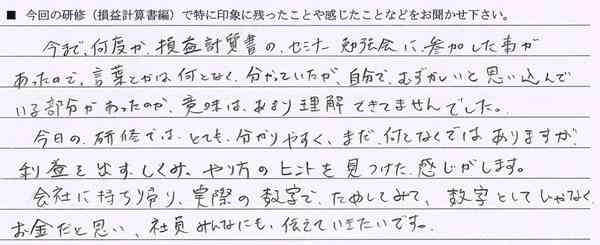 ■ 今回の研修（損益計算書編）で特に印象に残ったことや感じたことなどをお聞かせ下さい。
今まで、何度か、損益計算書の、セミナー勉強会に、参加した事が
あったので、言葉とかは何となく、分かっていたが、自分で、むずかしいと思い込んで
いる部分があったのか、意味は、あまり理解できてませんでした。
今日の、研修では、とても、分かりやすく、まだ、何となくではありますが、
利益を出す、しくみ、やり方のヒントを見つけた、感じがします。
会社に持ち帰り、実際の数字で、ためしてみて、数字としてじゃなく、
お金だと思い、社員みんなにも、伝えていきたいです。